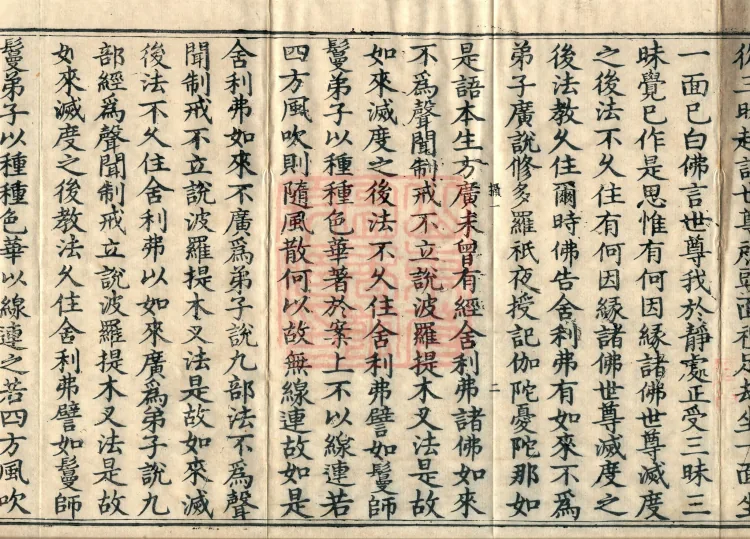 一面已白佛言世尊我於靜處正受三昧三
昧覺已作是思惟有何因緣諸佛世尊滅度
之後法不久住有何因緣諸佛世尊滅度之
後法教久住爾時佛告舍利弗有如來不爲
弟子廣說修多羅祇夜授記伽陀憂陀那如
攝一 二
是語本生方廣未曾有經舍利弗諸佛如來
不爲聲聞制戒不立說波羅提木叉法是故
如來滅度之後法不久住舍利弗譬如鬘師
鬘弟子以種種色華著於案上不以線連若
四方風吹則隨風散何以故無線連故如是
舍利弗如來不廣爲弟子說九部法不爲聲
聞制戒不立說波羅提木叉法是故如來滅
後法不久住舍利弗以如來廣爲弟子說九
部經爲聲聞制戒立說波羅提木叉法是故
如來滅度之後教法久住舍利弗譬如鬘師
鬘弟子以種種色華以線連之若四方風吹